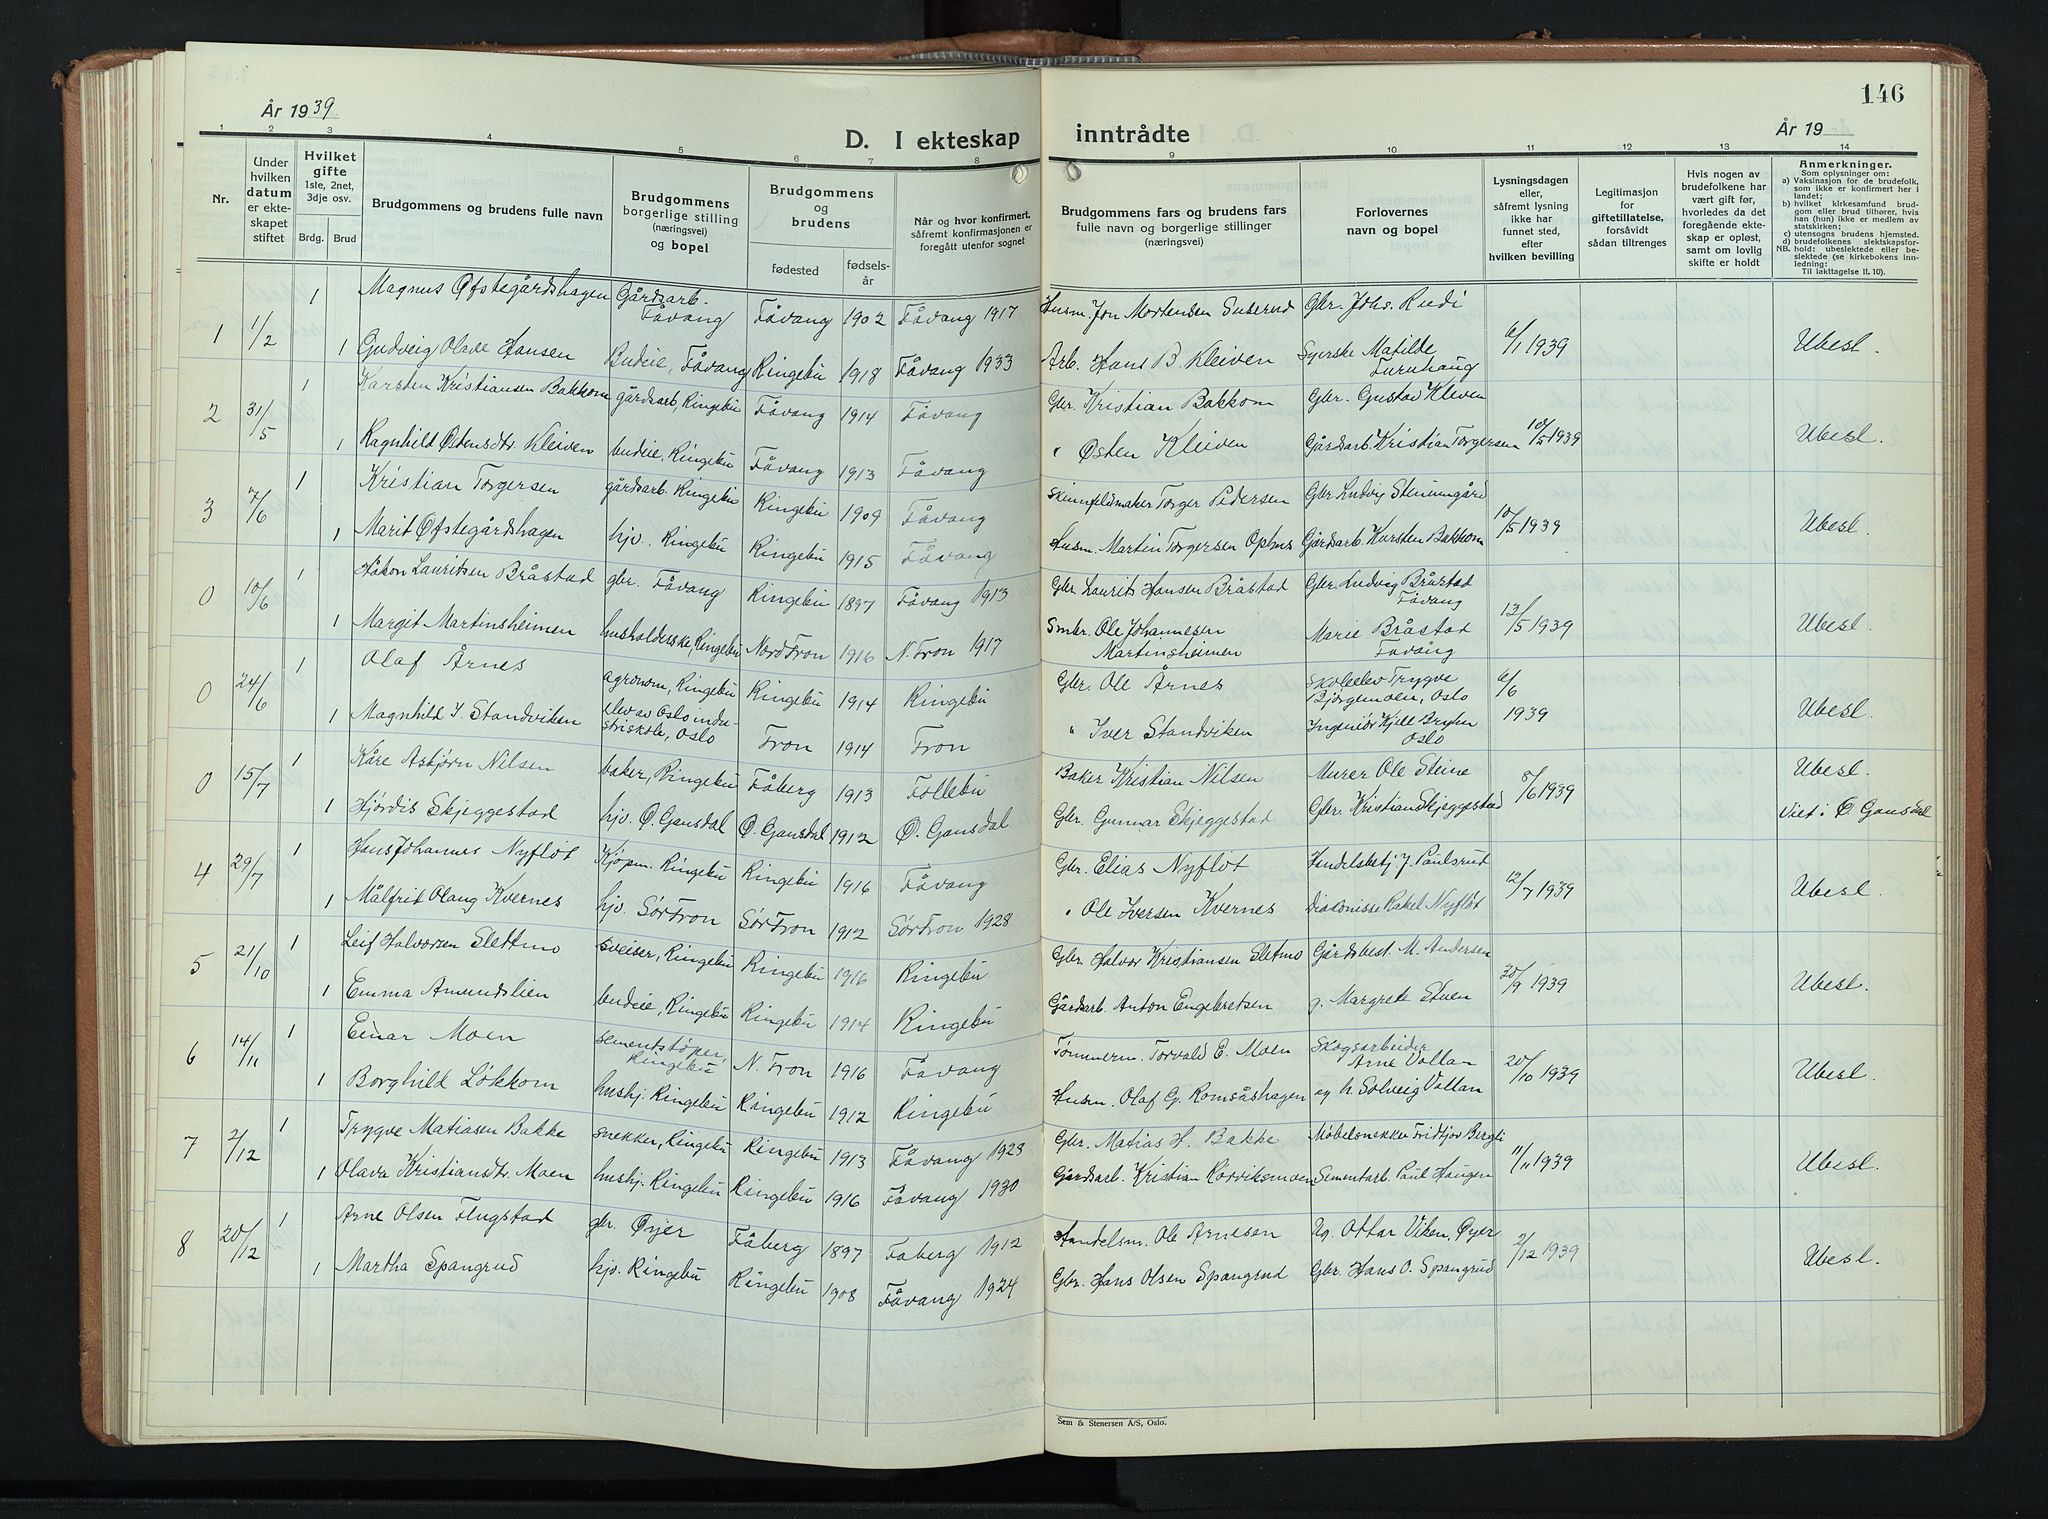 År 1939.
146
År 19
D. I ekteskap inntrådte
1 2 3 4 5 6 7 8 9 10 11 12 13 14
Nr.
Under hvilken datum er ekteskapet stiftet
Hvilket gifte 1ste, 2net, 3dje osv.
Brdg. Brud
Brudgommens og brudens fulle navn
Brudgommens borgerlige stilling (næringsvei) og bopel
Brudgommens og brudens
fødested
fødselsår
Når og hvor konfirmert, såfremt konfirmasjonen er foregått utenfor sognet
Brudgommens fars og brudens fars fulle navn og borgerlige stillinger (næringsvei)
Forlovernes navn og bopel
Lysningsdagen eller, såfremt lysning ikke har funnet sted, efter hvilken bevilling
Legitimasjon for giftetillatelse, forsåvidt sådan tiltrenges
Hvis nogen av brudefolkene har vært gift før, hvorledes da det foregående ekteskap er opløst, samt om lovlig skifte er holdt
Anmerkninger.
Som oplysninger om:
a) Vaksinasjon for de brudefolk, som ikke er konfirmert her i landet;
b) hvilket kirkesamfund brudgom eller brud tilhører, hvis han (hun) ikke er medlem av statskirken;
c) utensogns brudens hjemsted.
d) brudefolkenes slektskapsforhold: ubeslektede eller beslektede (se kirkebokens innledning:
NB.
Til iakttagelse II, 10).
1 1/2 1 Magnus Øfstegårdshagen Gårdsarb. Fåvang Fåvang 1902 Fåvang 1917 Husm. Jon Mortensen Suserud Gbr. Johs. Rudi 6/1 1939 Ubesl.
1 Gudveig Olave Hansen Budeie, Fåvang Ringebu 1918 Fåvang 1933 Arb. Hans B. Kleiven Syerske Matilde Furuhaug
2 31/5 1 Karsten Kristiansen Bakkom gårdsarb, Ringebu Fåvang 1914 Fåvang Gbr. Kristian Bakkom Gbr. Gustav Kleven 10/5 1939 Ubesl.
1 Ragnhild Østensdtr. Kleiven budeie, Ringebu Fåvang 1913 Fåvang " Østen Kleiven Gårdsarb. Kristian Torgersen
3 7/6 1 Kristian Torgersen gårdsarb. Ringebu Ringebu 1909 Fåvang Skinnfeldmaker Torger Pedersen Gbr. Ludvig Steinmgård 10/5 1939 Ubesl.
1 Marit Øfstegårdshagen hjv. Ringebu Ringebu 1915 Fåvang Husm. Martin Torgersen Gårdsarb. Karsten Bakkom
0 10/6 1 Håkon Lauritsen Bråstad gbr. Fåvang Ringebu 1897 Fåvang 1913 Gbr. Laurits Hansen Bråstad Gbr. Ludvig Bråstad Fåvang 13/5 1939 Ubesl.
1 Margit Martinsheimen husholderske, Ringebu Nord Fron 1916 N. Fron 1917 Smbr. Ole Johannesen Martinsheimen Marie Bråstad Fåvang
0 24/6 1 Olaf Årnes agronom, Ringebu Ringebu 1914 Ringebu Gbr. Ole Årnes Skoleelev Trygve Bjørgemoen, Oslo 6/6 1939 Ubesl.
1 Magnhild I. Standviken Elev av Oslo industriskole, Oslo Fron 1914 Fron " Iver Standviken Ingeniør Kjell Bryhn Oslo
0 15/7 1 Kåre Asbjørn Nilsen baker, Ringebu Fåberg 1913 Follebu Baker Kristian Nilsen Murer Ole Steine 8/6 1939 Ubesl.
1 Hjørdis Skjeggestad hjv. Ø. Gausdal Ø. Gausdal 1912 Ø. Gausdal Gbr. Gunnar Skjeggestad Gbr. Kristian Skjeggestad Viet i Ø. Gausdal
4 29/7 1 Hans Johannes Nyfløt Kjøpm. Ringebu Ringebu 1916 Fåvang Gbr. Elias Nyfløt Handelsbetj. J. Paulsrud 12/7 1939 Ubesl.
1 Målfrid Olaug Kvernes hjv. Sør Fron Sør Fron 1912 Sør Fron 1928 " Ole Iversen Kvernes Diakonisse Rakel Nyfløt
5 21/10 1 Leif Halvorsen Slettmo sveiser, Ringebu Ringebu 1916 Ringebu Gbr. Halvor Kristiansen Sletmo Gårdsbest. M. Andersen 30/9 1939 Ubesl.
1 Emma Amundslien budeie, Ringebu Ringebu 1914 Ringebu Gårdsarb. Anton Engebretsen g. Margrete Stuen
6 14/11 1 Einar Moen sementstøper, Ringebu N. Fron 1916 Fåvang Tømmerm. Torvald E. Moen Skogsarbeider Arne Vollan 20/10 1939 Ubesl.
1 Borghild Løkkom hushj. Ringebu Ringebu 1912 Ringebu Husm. Olaf G. Romsåshagen og h. Solveig Vollan
7 2/12 1 Trygve Matiasen Bakke snekker, Ringebu Ringebu 1913 Fåvang 1928 Gbr. Matias H. Bakke Møbelsnekker Fridtjov Bergli 11/11 1939 Ubesl.
1 Olava Kristiansdtr. Moen hushj. Ringebu Ringebu 1916 Fåvang 1930 Gårdsarb. Kristian Rørviksmoen Sementarb. Paul Haugen
8 20/12 1 Arne Olsen Flugstad gbr. Øyer Fåberg 1897 Faberg 1912 Handelsm. Ole Arnesen Ug. Ottar Viken, Øyer 2/12 1939 Ubesl.
1 Martha Spangrud hjv. Ringebu Ringebu 1908 Fåvang 1924 Gbr. Hans Olsen Spangrud Gbr. Hans O. Spangrud
Sem & Stenersen A/S, Oslo.